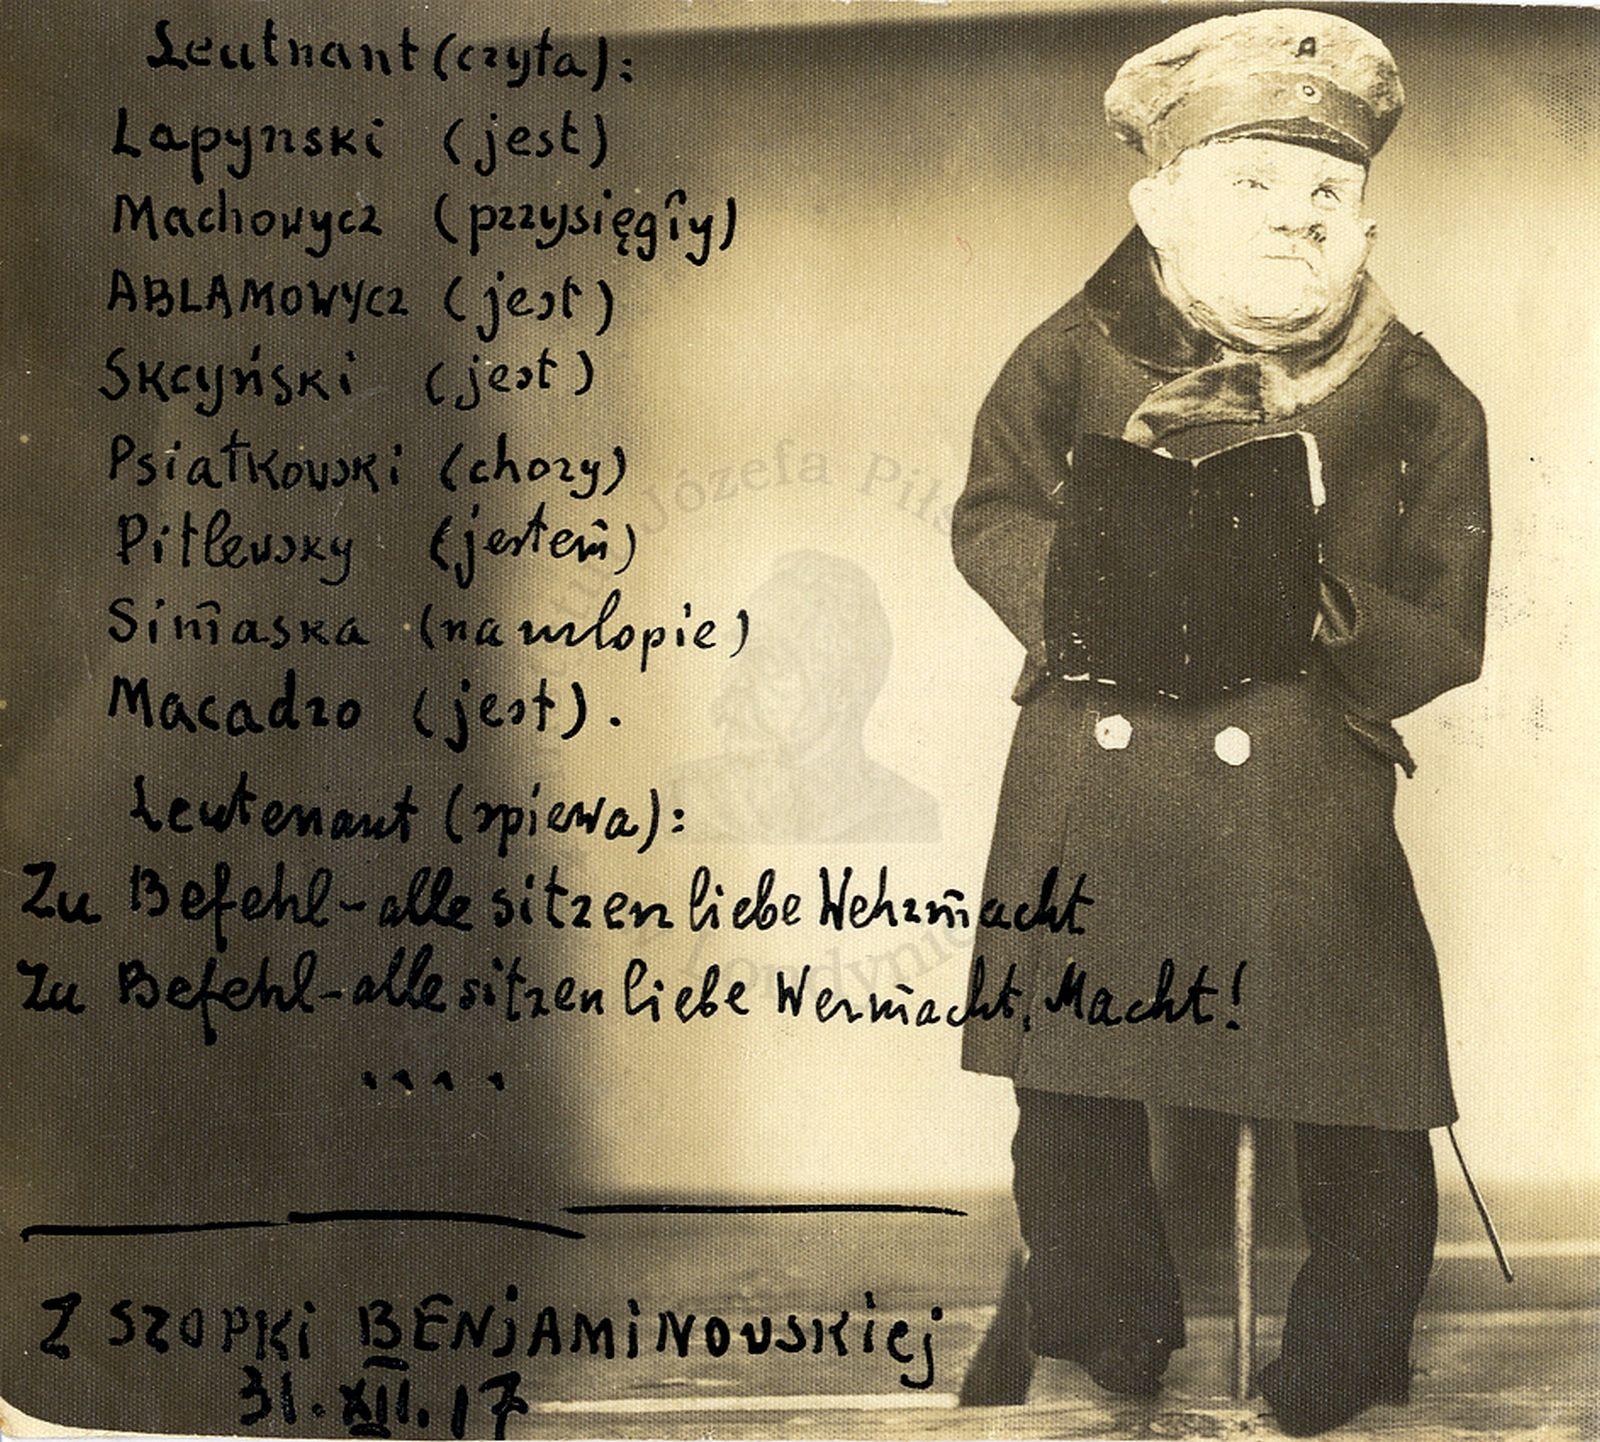 Leutnant (czyta):
Lapynski (jest)
Machowycz (przysięgły)
ABLAMOWYCZ (jest)
Skcyński (jest)
Psiatkowski (chory)
Pitlewsky (jestem)
Simaska (na urlopie)
Macadro (jest).
Leutenant (spiewa):
Zu Befehl - alle sitzen liebe Wehrmacht
Zu Befehl - alle sitzen liebe Wermacht, Macht!
....
Z SZOPKI BENJAMINOWSKIEJ
31.XII.17
Józefa Piłs
Londynie